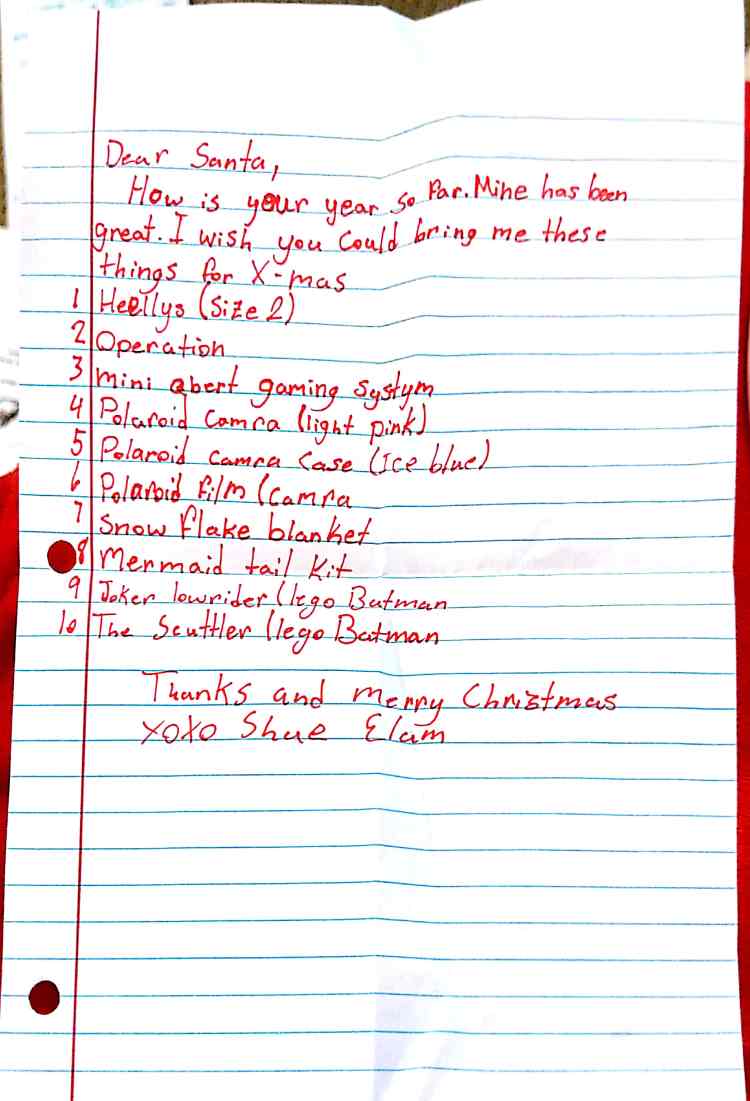 Dear Santa,
How is your year so far. Mine has been
great. I wish you could bring me these
things for X-mas
1 Heellys (Size 2)
2 Operation
3 mini qbert gaming systym
4 Polaroid camra (light pink)
5 Polaroid camra case (Ice blue)
6 Polaroid film (camra
7 Snow flake blanket
8 Mermaid tail kit
9 Joker lowrider (lego Batman
10 The Scuttler (lego Batman
Thanks and merry Christmas
XOXO Shue Elam